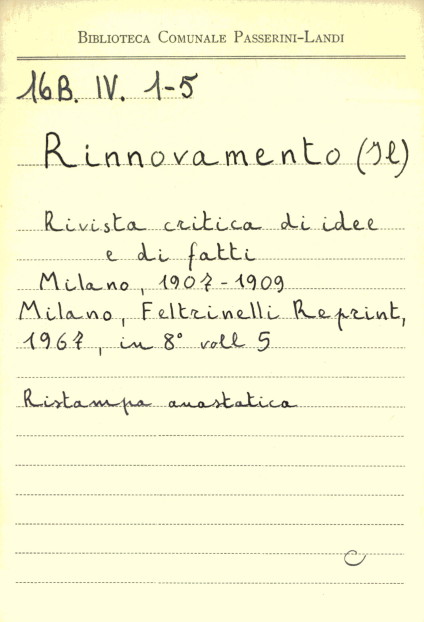 BIBLIOTECA COMUNALE PASSERINI-LANDI
16B. IV. 1-5
Rinnovamento (Il)
Rivista critica di idee
e di fatti
Milano, 1907-1909
Milano, Feltrinelli Reprint,
1967, in 8° voll 5
Ristampa anastatica
C